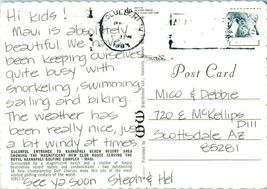 Hi kids!
Maui is absolutely
beautiful. We have
been keeping ourselves
quite busy with
snorkeling, swimming,
sailing and biking.
The weather has
been really nice, just
a bit windy at times.
COLORFUL ENTRANCE TO KAANAPALI BEACH RESORT AREA
SHOWING THE MAGNIFICENT NEW CLUB HOUSE SERVING THE
ROYAL KAANAPALI GOLFING COMPLEX - MAUI.
See ya soon Steph & Hal
Post Card
Mico & Debbie
720 E McKellips
D111
Scottsdale AZ
85281